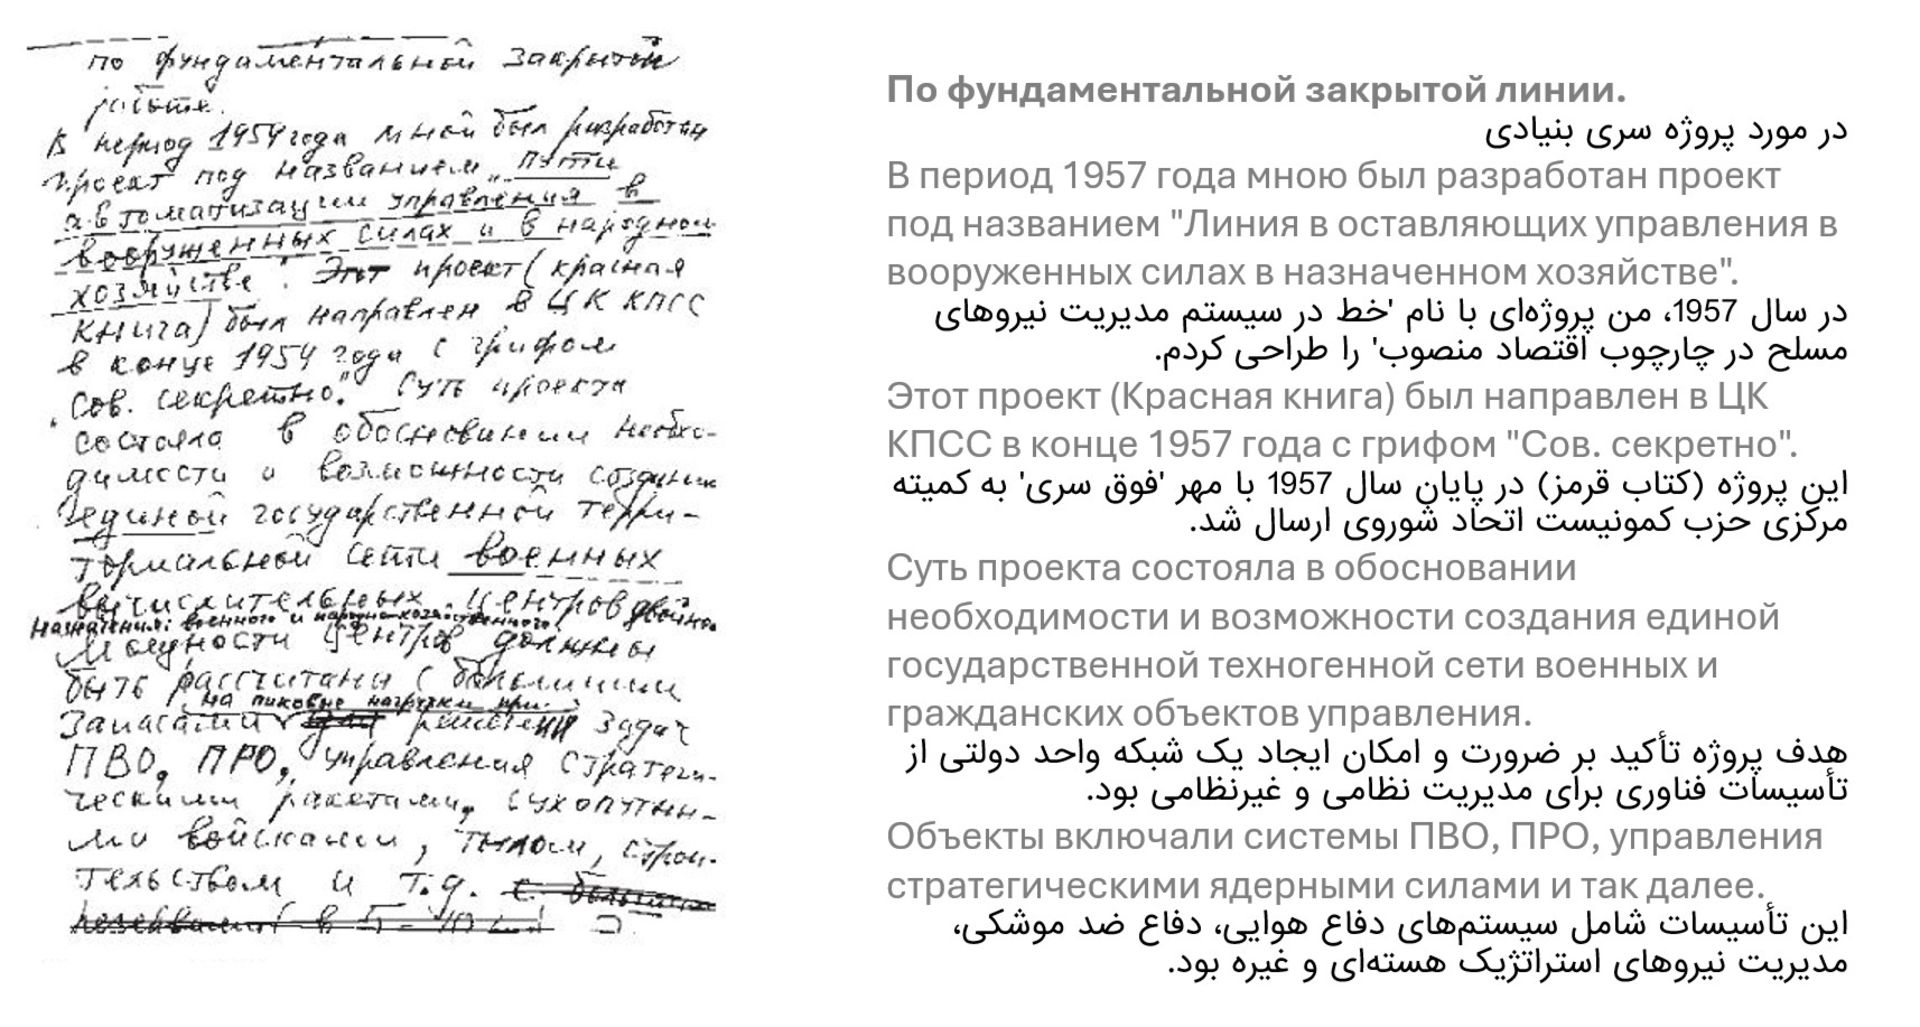 по фундаментальной закрытой
работе.
В период 1959 года мной был разработан
проект под названием „Пути
автоматизации управления в
вооруженных силах и в народном
хозяйстве". Этот проект (красная
книга) был направлен в ЦК КПСС
в конце 1959 года с грифом
„Сов. секретно." Суть проекта
состояла в обосновании необхо-
димости и возможности создания
единой государственной терри-
ториальной сети военных
вычислительных центров двойного
назначения: военного и народно-хозяйственного.
Мощности центров должны
быть рассчитаны с большими
на пиковые нагрузки при
запасами для решении задач
ПВО, ПРО, управления стратеги-
ческими ракетами, сухопутны-
ми войсками, тылом, строи-
тельством и т.д. с большими
резервами в 5-10
По фундаментальной закрытой линии.
در مورد پروژه سری بنیادی
В период 1957 года мною был разработан проект
под названием "Линия в оставляющих управления в
вооруженных силах в назначенном хозяйстве".
در سال 1957، من پروژه‌ای با نام 'خط در سیستم مدیریت نیروهای
مسلح در چارچوب اقتصاد منصوب' را طراحی کردم.
Этот проект (Красная книга) был направлен в ЦК
КПСС в конце 1957 года с грифом "Сов. секретно".
این پروژه (کتاب قرمز) در پایان سال 1957 با مهر 'فوق سری' به کمیته
مرکزی حزب کمونیست اتحاد شوروی ارسال شد.
Суть проекта состояла в обосновании
необходимости и возможности создания единой
государственной техногенной сети военных и
гражданских объектов управления.
هدف پروژه تأکید بر ضرورت و امکان ایجاد یک شبکه واحد دولتی از
تأسیسات فناوری برای مدیریت نظامی و غیرنظامی بود.
Объекты включали системы ПВО, ПРО, управления
стратегическими ядерными силами и так далее.
این تأسیسات شامل سیستم‌های دفاع هوایی، دفاع ضد موشکی،
مدیریت نیروهای استراتژیک هسته‌ای و غیره بود.